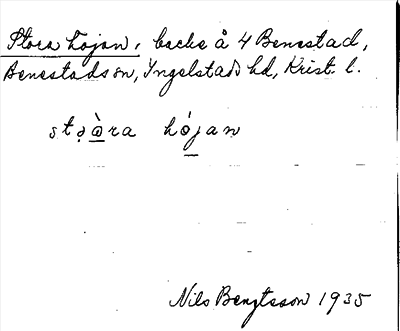 Stora höjan, backe å 4 Benestad,
Benestads sn, Ingelstads hd, Krist. l.
stọꭤ̀ra hójan
Nils Bengtsson 1935